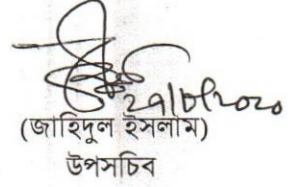 ২৭/৮/২০২০
(জাহিদুল ইসলাম)
উপসচিব